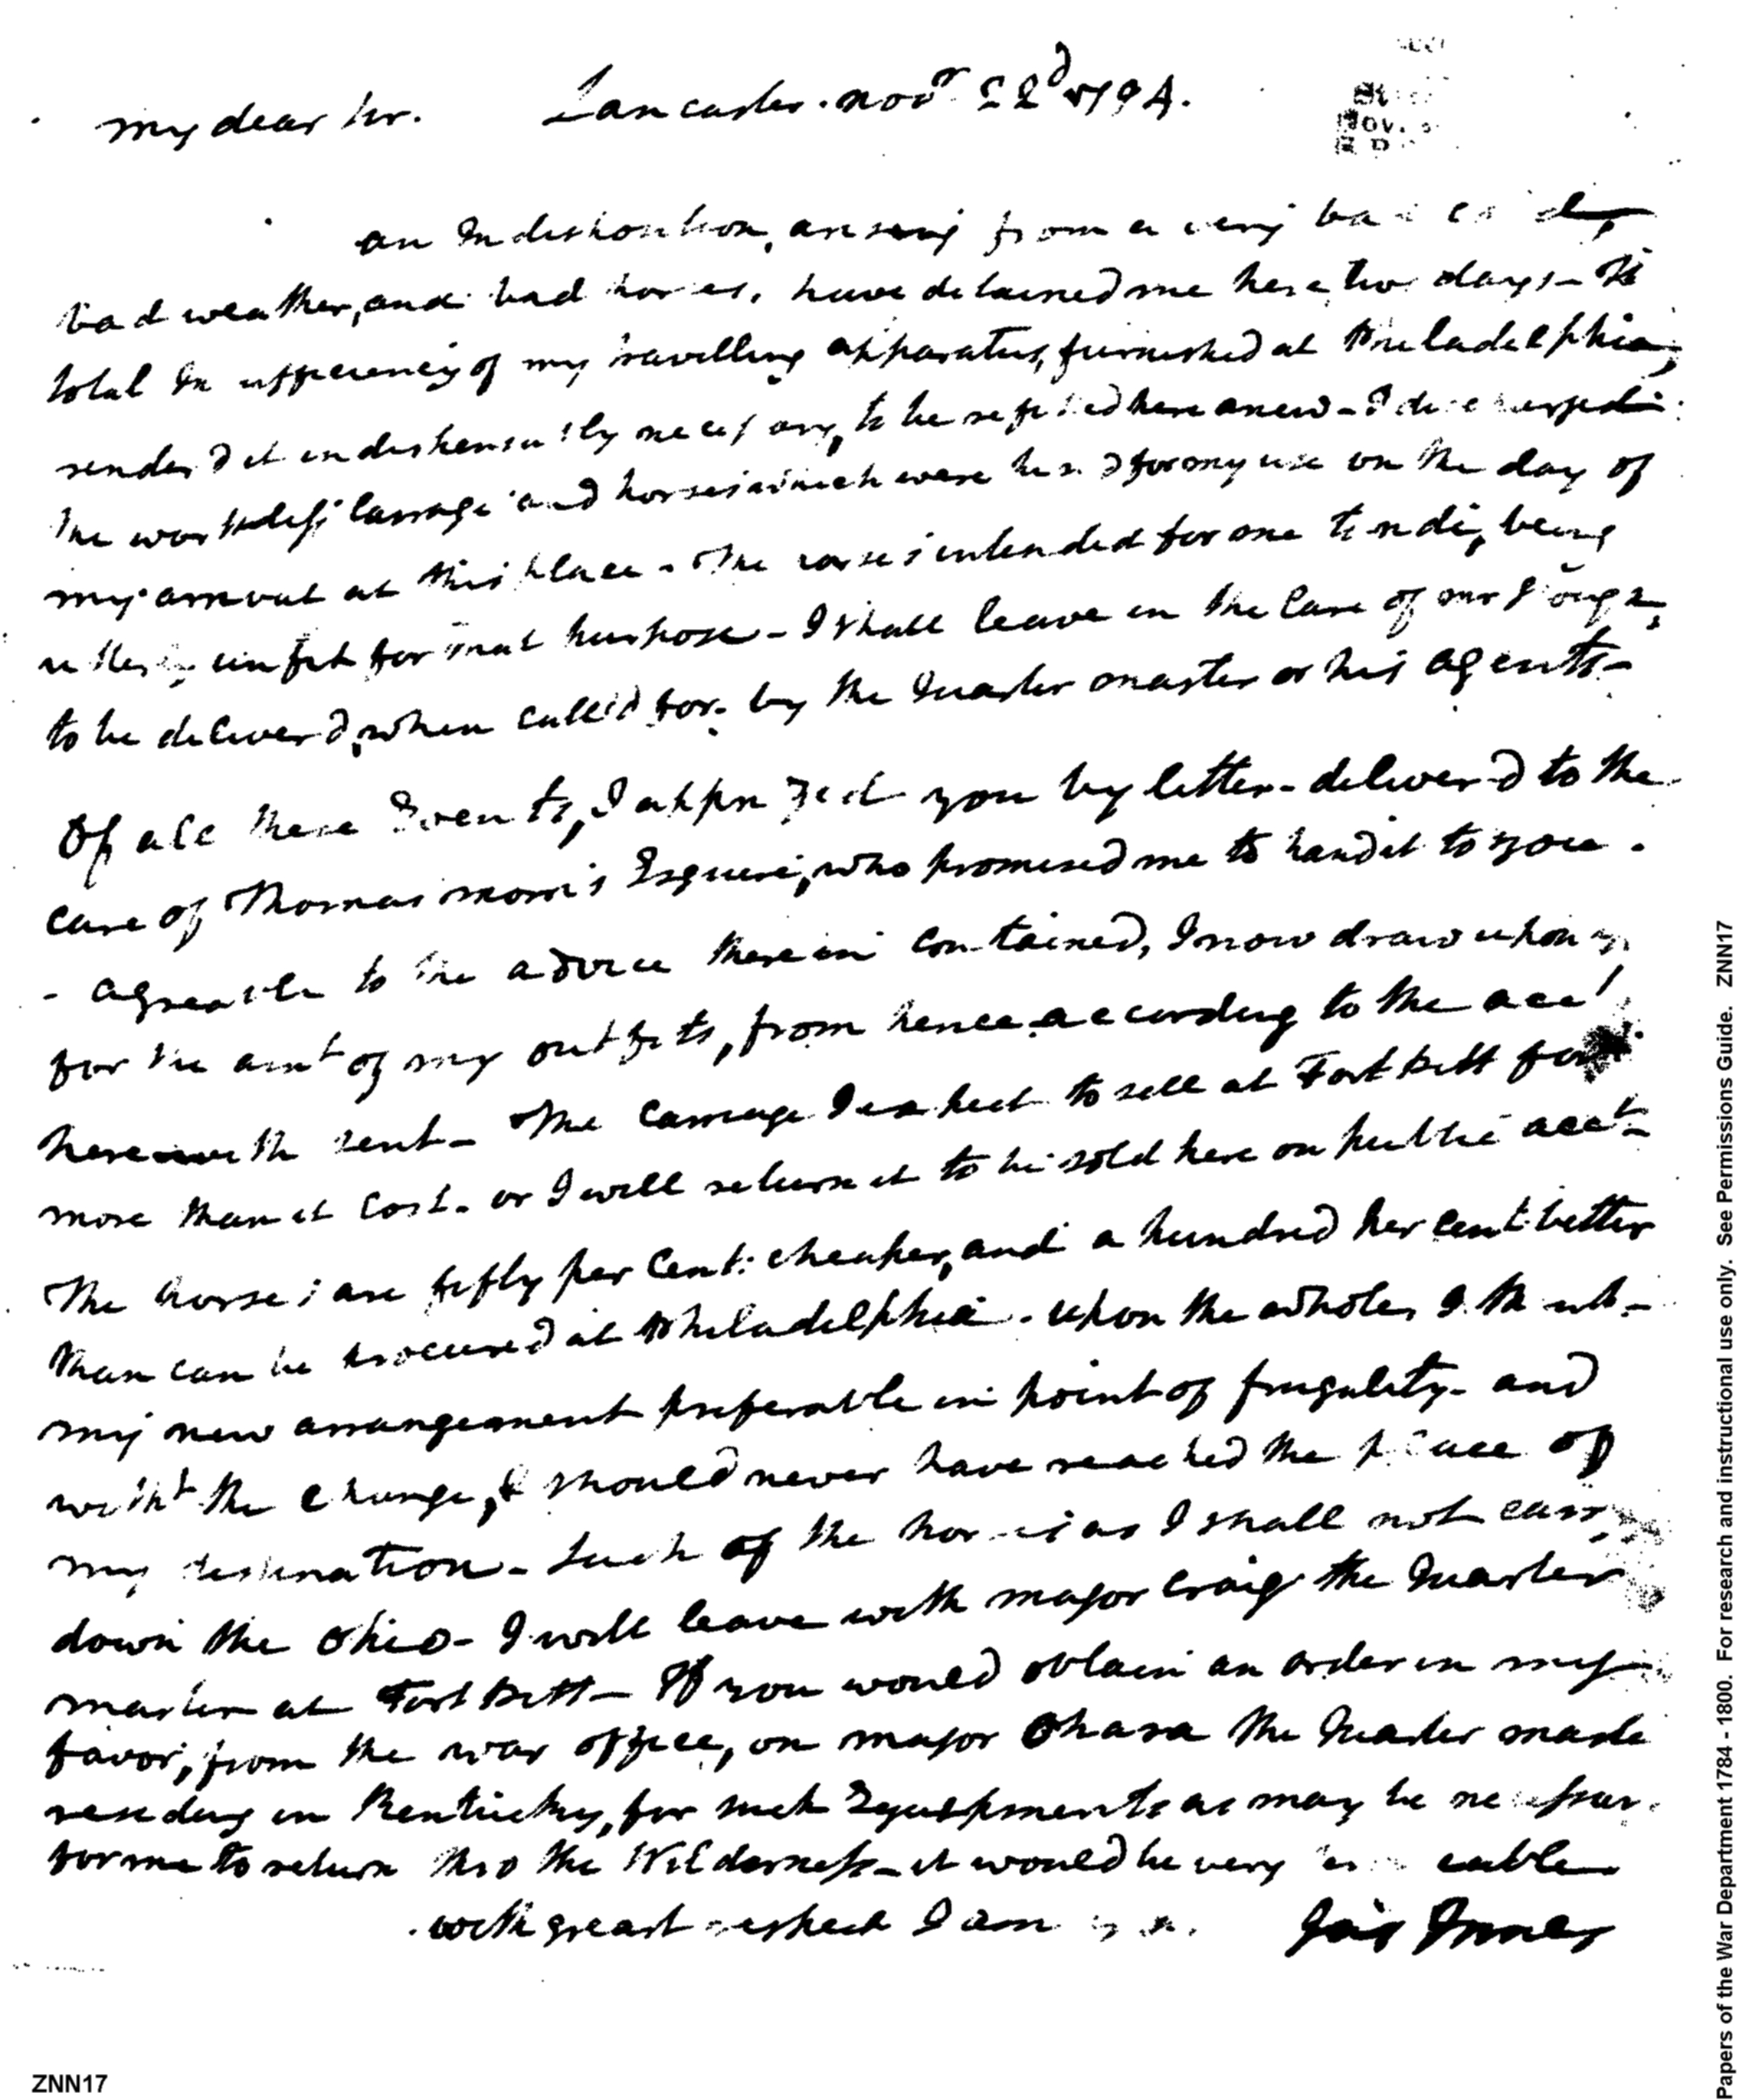 my dear Sir. Lancaster. novr 22d 1794.
an Indisposition, arising from a very bad cold,
bad weather, and bad horses, have detained me here two days - The
total Insufficiency of my travelling apparatus, furnished at Philadelphia,
render'd it indispensably necessary, to be refitted here anew - I discharged
the worthless Carriage and horses which were hired for my use on the day of
my arrival at this place - The horses intended for me to ride, being
utterly unfit for that purpose - I shall leave in the Care of mr
to be deliver'd, when called for. by the Quarter master or his agents -
Of all these Events, I apprized you by letter - deliver'd to the
care of Thomas morris Esquire, who promised me to hand it to you.
- agreeable to the advice therein Contained, I now draw upon you
for the amt of my outfits, from hence according to the acct
herewith sent - The Carriage I expect to sell at Fort Pitt for
more than it Cost - or I will return it to be sold here on public acct -
The horses are fifty per Cent: cheaper, and a hundred per Cent: better
than can be procured at Philadelphia - Upon the whole, I think
my new arrangement preferable in point of frugality - and
witht the Change, I should never have reached the place of
my destination - Such of the horses as I shall not carry
down the Ohio - I will leave with major Craig the Quarter
master at Fort Pitt - If you would obtain an order in my
favor, from the war office, on major Ohara the Quarter maste
residing in Kentucky, for such Equipments as may be necessary
for me to return thro the Wilderness - it would be very
with great respect I am Jas Innes
ZNN17
Papers of the War Department 1784 - 1800. For research and instructional use only. See Permissions Guide. ZNN17